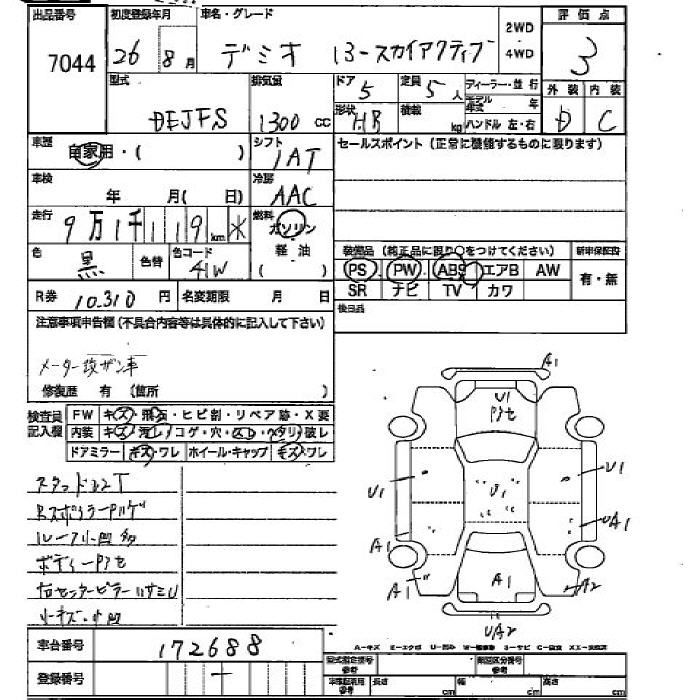 出品番号 初度登録年月 車名・グレード 評価点
7044 26 8月 デミオ 13-スカイアクティブ 2WD 4WD 3
型式 排気量 ドア 5 定員 5人 ディーラー・並行 外装 内装
DEJFS 1300cc 形状 HB 積載 kg モデル年式 年 ハンドル 左・右 D C
車歴 自家用・( ) シフト IAT セールスポイント(正常に機能するものに限ります)
車検 年 月( 日) 冷房 AAC
走行 9万1千119km * 燃料 ガソリン 軽油 ( )
色 黒 色替 色コード 41W
装備品(純正品に限り○をつけてください) 新車保証書
PS PW ABS エアB AW 有・無
SR ナビ TV カワ
R券 10.310円 名変期限 月 日 後日品
注意事項申告欄(不具合内容等は具体的に記入して下さい)
メーター改ザン車
修復歴 有(箇所 )
検査員記入欄 FW キズ・飛石・ヒビ割・リペア跡・X要
内装 キズ・汚レ・コゲ・穴・スレ・ヘタリ・破レ
ドアミラー キズ・ワレ ホイール・キャップ キズ・ワレ
ルーフ小凹多
小キズ・小凹
A1
U1
U1
U1
U1
UA1
A1
A1
A1
A2
UA2
車台番号 172688
登録番号
型式指定番号 参考 類別区分番号 参考
長さ cm 幅 cm 高さ cm